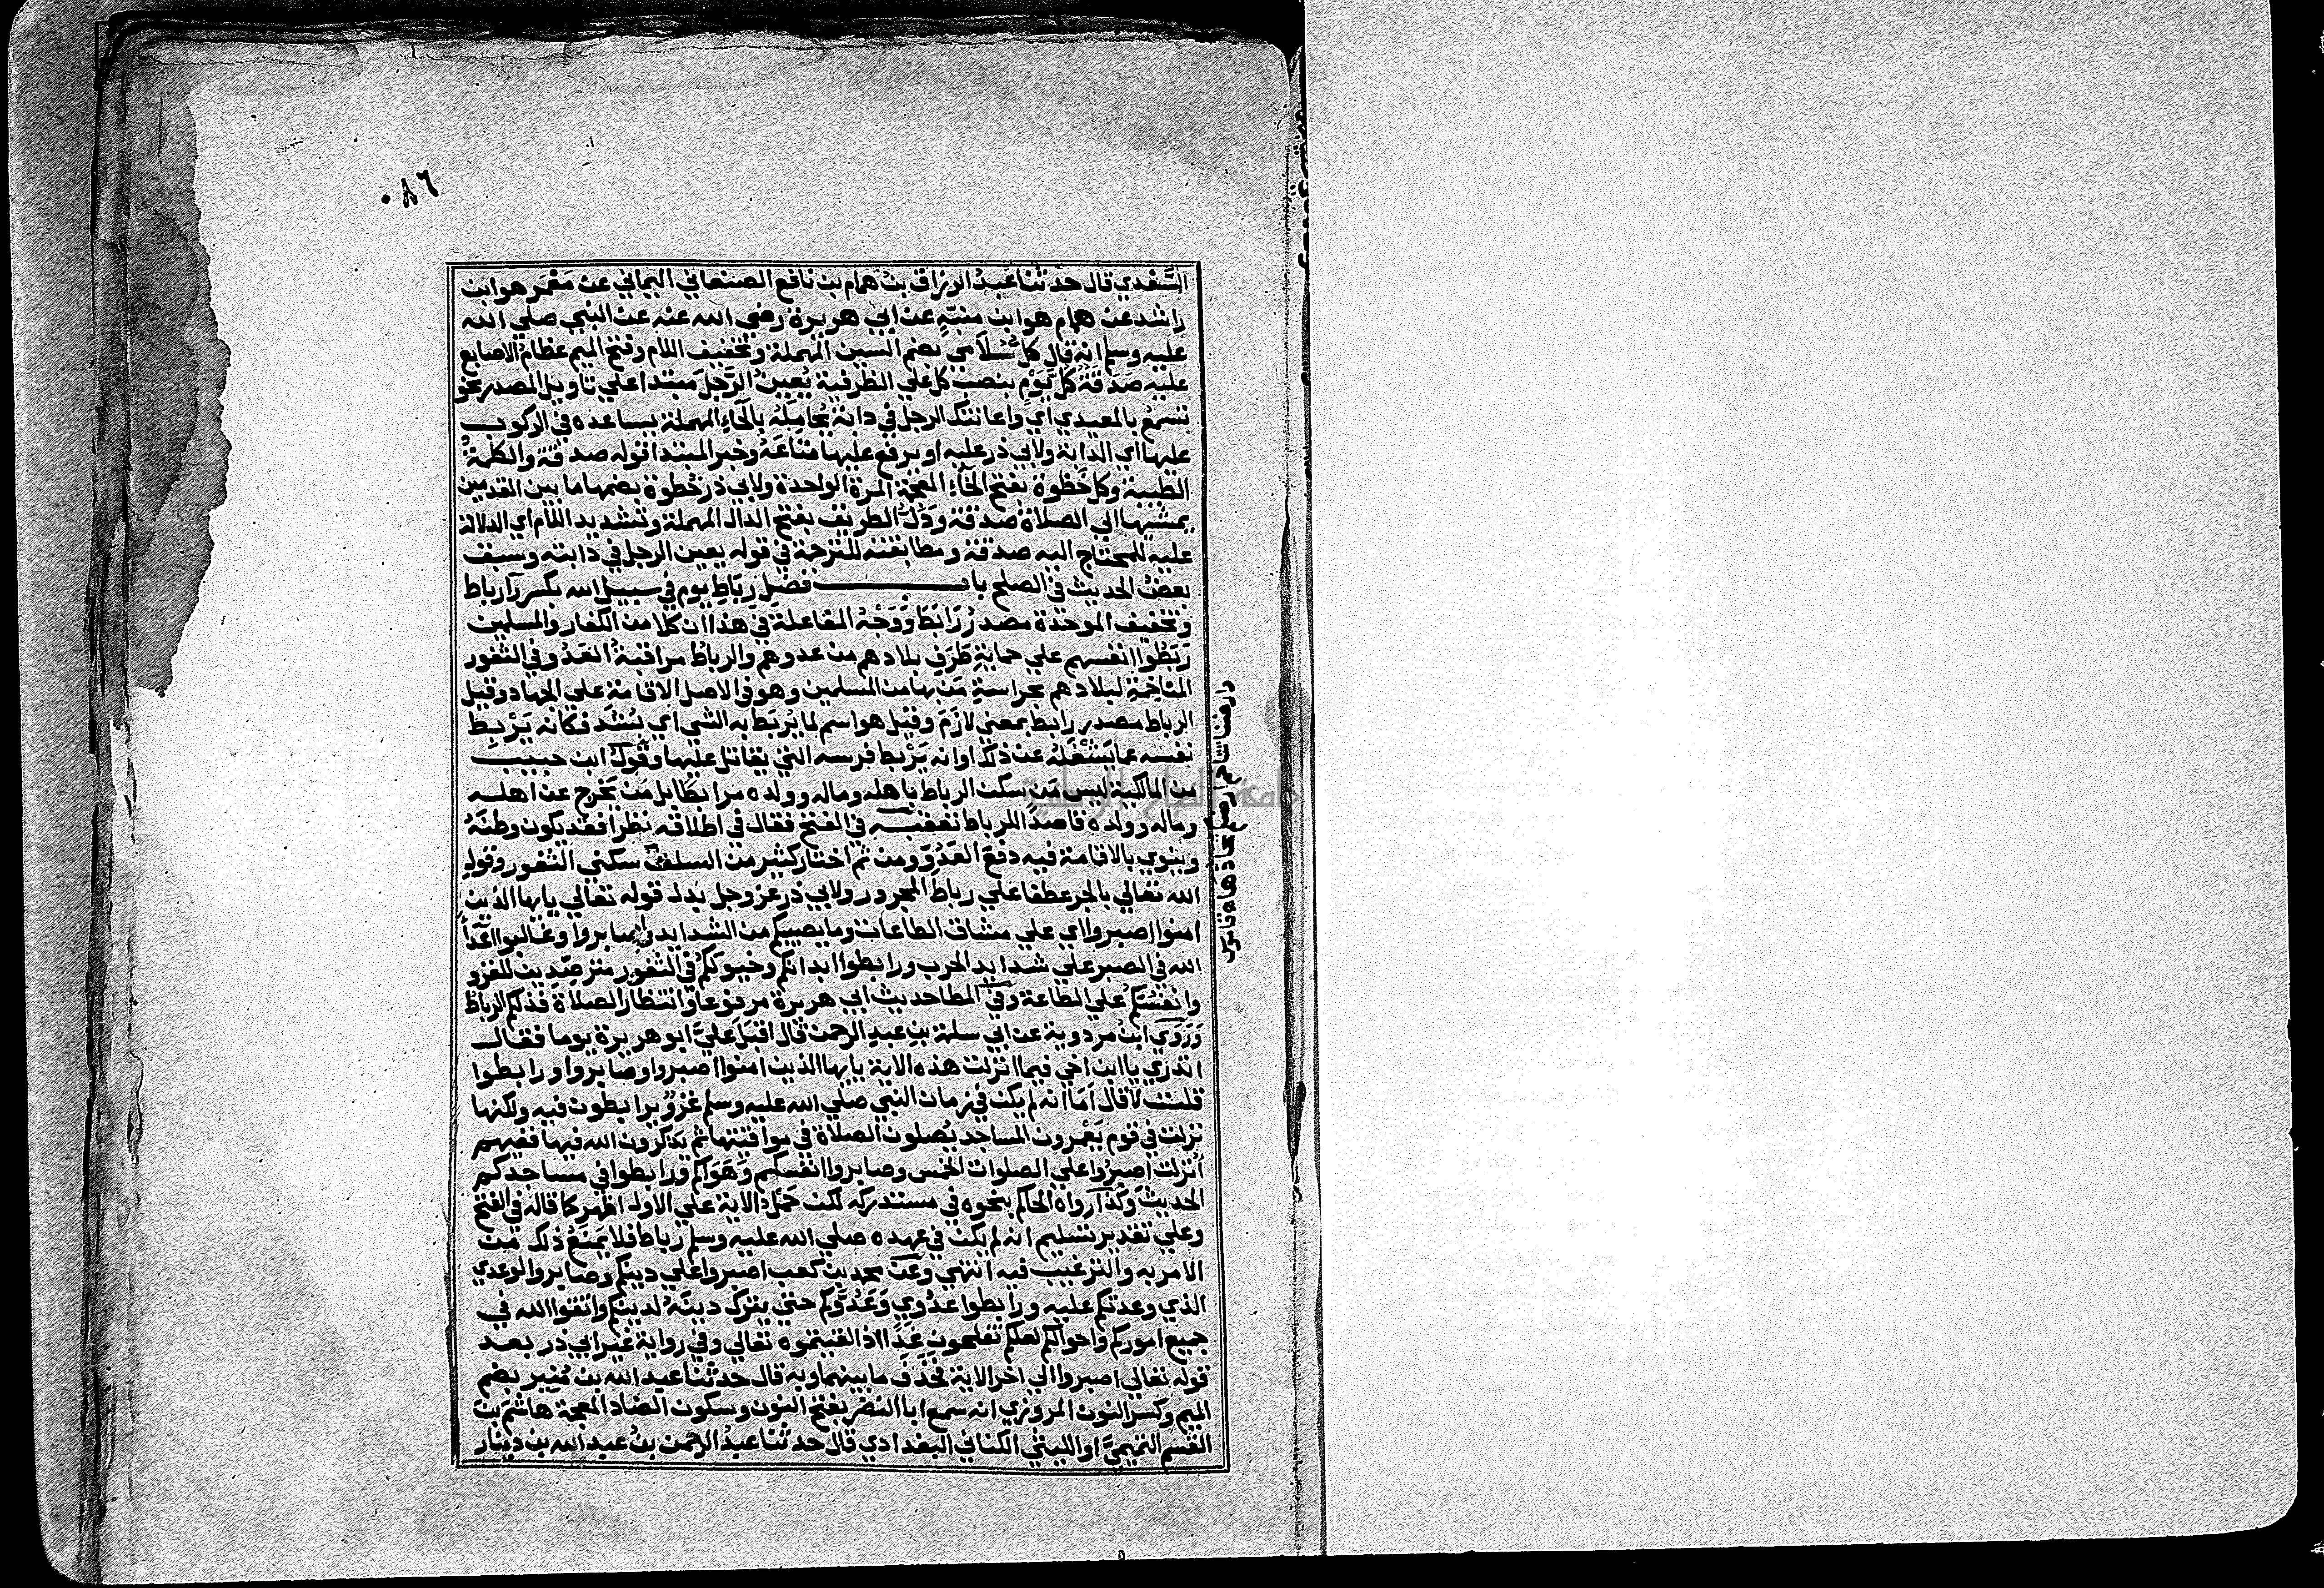 ٠٨٦
السَّعْدي قال حدثنا عبدُ الرزاق بن همام بن نافع الصنعاني اليماني عن مَعْمَر هو ابن
راشد عن همام هو ابن منبّهٍ عن ابي هريرة رضي الله عنه عن النبي صلي الله
عليه وسلم انه قال كل سُلَامي بضم السين المهملة وتخفيف اللام وفتح الميم عظام الاصابع
عليه صَدَقَةٌ كلَّ يَوْمٍ بنصب كل علي الظرفية يُعينُ الرَّجُلَ مبتدا علي تاويل المصدر نحو
تسمعُ بالمعيدي اي واعانتك الرجل في دابة يُحَامِلُهُ بالحَاءِ المهملة يساعده في الركوب
عليها اي الدابة ولابي ذر عليه او يرفع عليها مَتَاعَهُ وخبر المبتدا قوله صدقة والكلمةُ
الطيبة وكل خَطْوة بفتح الخاء المعجمة المرة الواحدة ولابي ذر خُطوة بضمها ما بين القدمين
يمشيها الي الصلاة صدقة ودَلُّ الطريق بفتح الدال المهملة وتشديد اللام اي الدلالة
عليه للمحتاج اليه صدقة ومطابقته للترجمة في قوله يعين الرجل في دابته وسبق
بعضُ الحديث في الصلح باب فضلِ رِبَاطِ يوم في سبيل الله بكسر رَا رباط
وتخفيف الموحدة مصدرُ رَابَطَ وَوَجْهُ المفاعلة في هذا ان كلا من الكفار والمسلمين
رَبَطُوا انفسهم علي حماية طَرَفِ بلادهم من عدوهم والرباطُ مراقبةُ العَدُو في الثغور
المتاخِمةِ لبلادهم بحراسةِ مَن بها من المسلمين وهو في الاصل الاقامة علي الجهاد وقيل
الرباط مصدر رابط بمعني لازَمَ وقيل هو اسم لما يُرْبَط به الشي اي يُشَدّ فكانه يَرْبِطُ
نفسه عما يَشْغَلُهُ عن ذلك او انه يَرْبط فرسه التي يقاتل عليها وقولُ ابن حبيب
من المالكية ليس مَن سكن الرباط باهله وماله وولده مرابطًا بل مَن يَخْرج عن اهله
وماله وولده قاصدًا للرباط تعقبه في الفتح فقال في اطلاقه نظر فقد يكون وطنَهُ
وينوي بالاقامة فيه دفعَ العَدُوِّ ومن ثم اختار كثير من السلف سكني الثغور وقولِ
الله تعالي بالجر عطفا علي رباط المجرور ولابي ذر عز وجل بدل قوله تعالي يايها الذين
امنوا اصبروا اي علي مشاق الطاعات وما يصيبكم من الشدايد وصابروا وغالبوا اعْدَأ
الله في الصبر علي شدايد الحرب ورابطوا ابدانكم وخيولكم في الثغور مترصّدين للغزو
وانفسَكُم علي الطاعة وفي الموطا حديث ابي هريرة مرفوعا وانتظار الصلاة فذلكم الرباط
وَرَوَي ابنُ مردوية عن ابي سلمة بن عبد الرحمن قال اقبَلَ عَليَّ ابو هريرة يوما فقال
اتدري يا ابن اخي فيما انزلت هذه الاية يايها الذين امنوا اصبروا وصابروا ورابطوا
قلت لا قال اَمَا انه لم يكن في زمان النبي صلي الله عليه وسلم غزوٌ يرابطون فيه ولكنها
نزلت في قوم يَعْمرون المساجد يُصلون الصلاة في مواقيتها ثم يذكرون الله فيها ففيهم
اُنزلت اصبرُوا علي الصلوات الخمس وصابروا انفسكم وهَوَاكم ورابطوا في مساجدكم
الحديث وكذا رواه الحاكم بنحوه في مستدركه لكن حَمْلُ الاية علي الاول اظهر كما قاله في الفتح
وعلي تقدير تسليم انه لم يكن في عهده صلي الله عليه وسلم رباط فلا يَمنعُ ذلك من
الامر به والترغيب فيه انتهي وعَن محمد بن كعب اصبروا علي دينكم وصابروا لوعدي
الذي وعدتكم عليه ورابطوا عدُوي وَعَدُوَّكم حتي يترك دينَهُ لدينكم واتقوا الله في
جميع اموركم واحوالكم لعلكم تفلحون غَدًا اذا لقيتموه تعالي وفي رواية غير ابي ذر بعد
قوله تعالي اصبروا الي اخر الاية فحَذَفَ ما بينهما وبه قال حدثنا عبد الله بن مُنِير بضم
الميم وكسر النون المروزي انه سمع ابا النضر بفتح النون وسكون الضاد المعجمة هاشمَ بنَ
القسم التميميَّ او الليثي الكناني البغدادي قال حدثنا عبدُ الرحمن بنُ عبد الله بن دينار